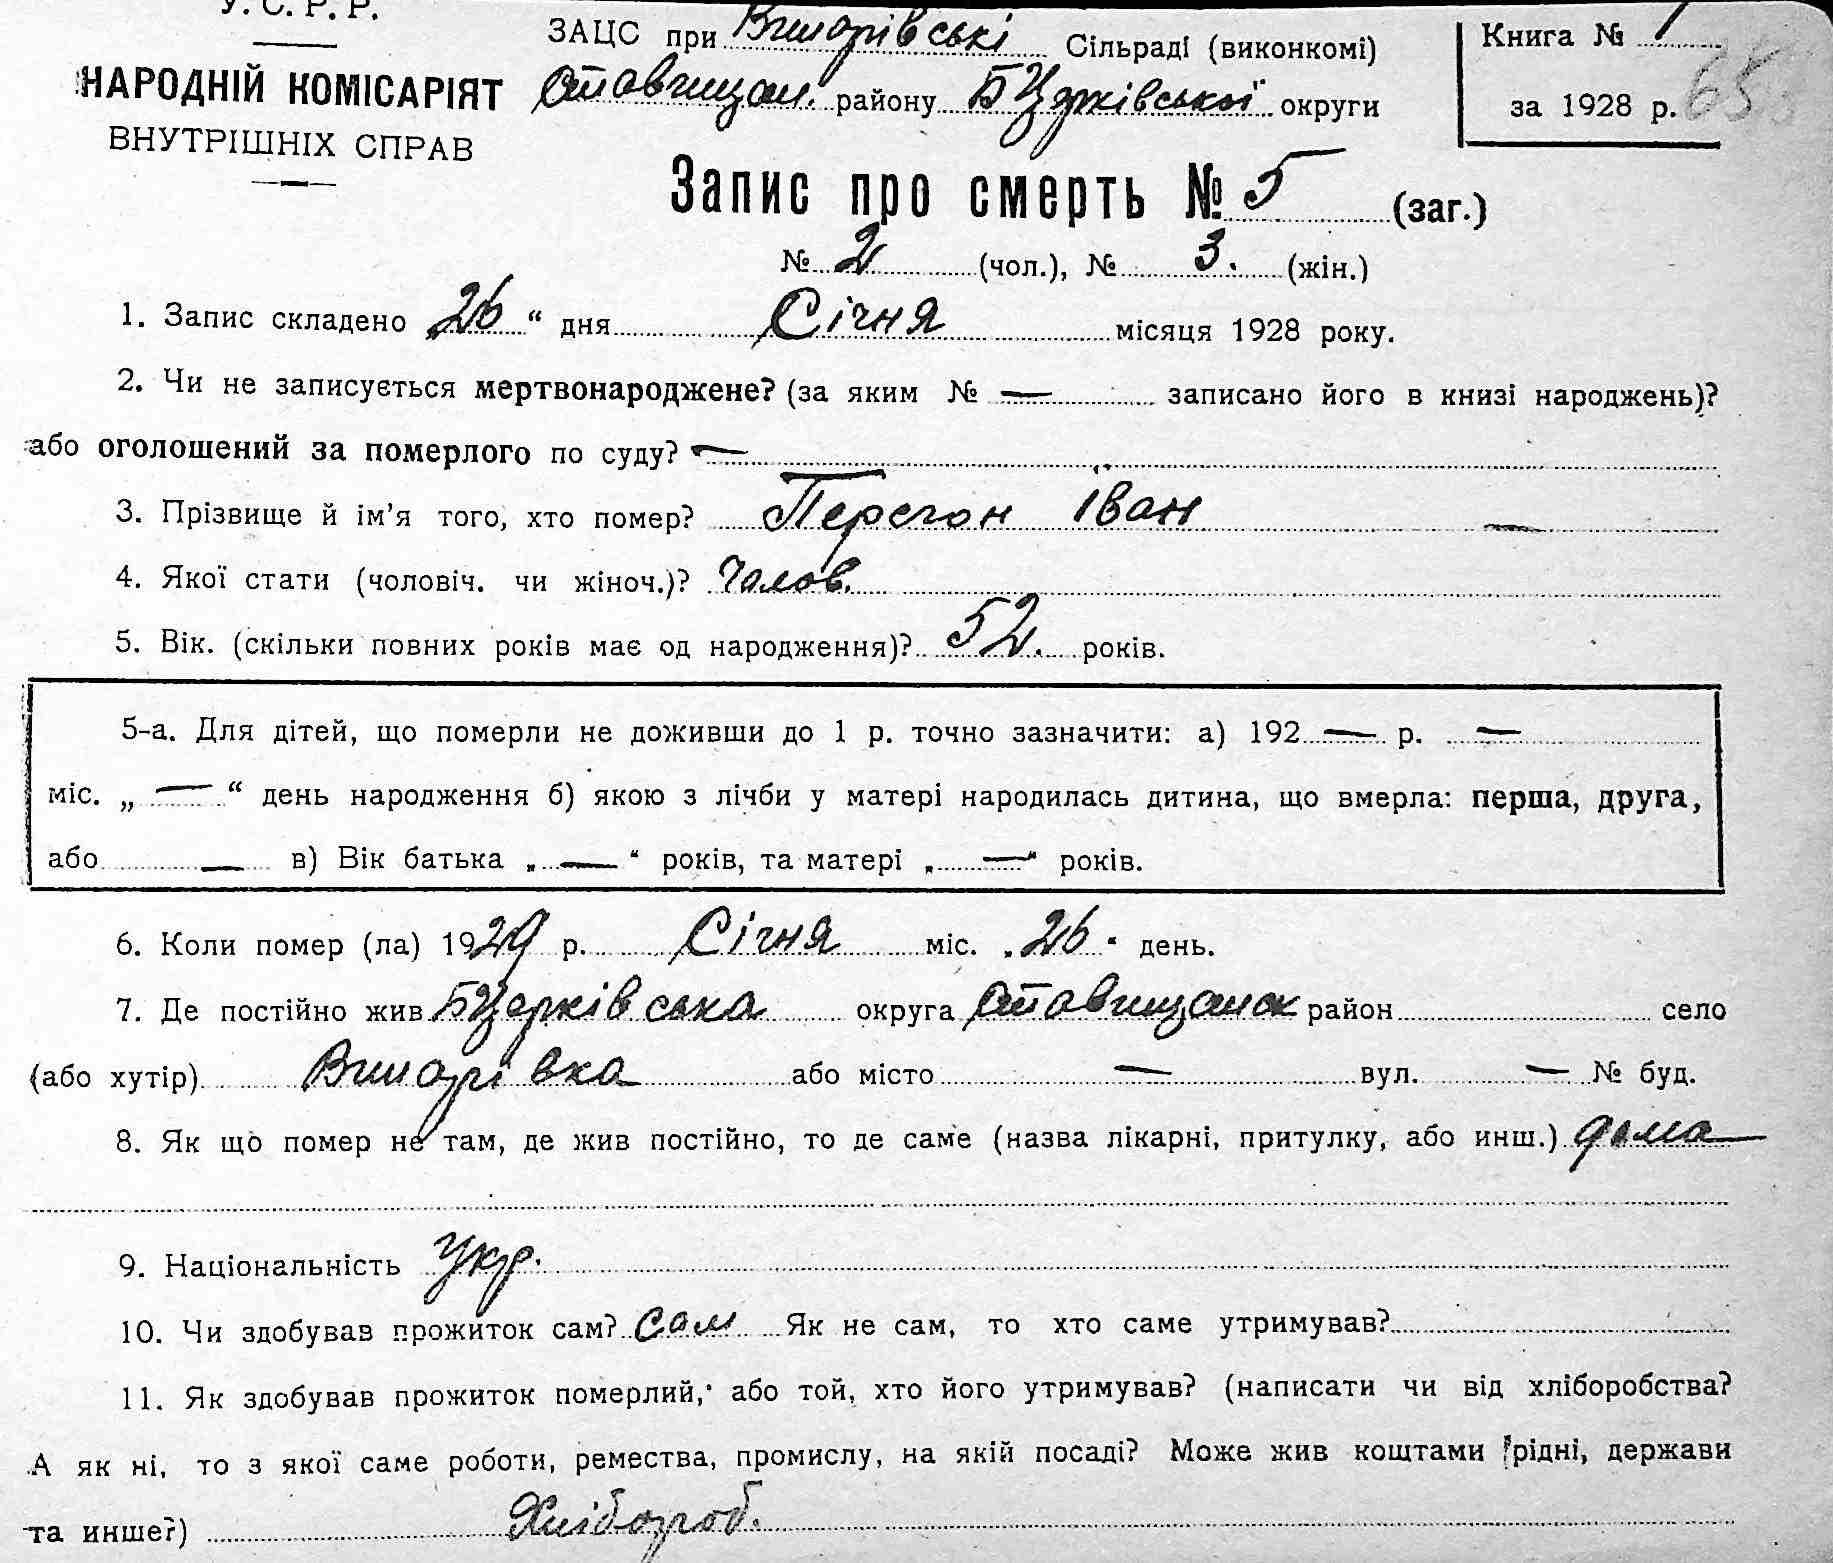 У. С. Р. Р.
НАРОДНІЙ КОМІСАРІЯТ
ВНУТРІШНІХ СПРАВ
ЗАЦС при Вишорівські Сільраді (виконкомі)
Ставищан. району БЦерківської округи
Книга № 1
за 1928 р. 65
Запис про смерть № 5 (заг.)
№ 2 (чол.), № 3. (жін.)
1. Запис складено 26 “ дня Січня місяця 1928 року.
2. Чи не записується мертвонароджене? (за яким № — записано його в книзі народжень)?
або оголошений за померлого по суду? —
3. Прізвище й ім’я того, хто помер? Перегон Іван —
4. Якої стати (чоловіч. чи жіноч.)? Чолов.
5. Вік. (скільки повних років має од народження)? 52. років.
5-а. Для дітей, що померли не доживши до 1 р. точно зазначити: а) 192 — р. —
міс. „ — “ день народження б) якою з лічби у матері народилась дитина, що вмерла: перша, друга,
або — в) Вік батька „ — “ років, та матері „ — “ років.
6. Коли помер (ла) 1929 р. Січня міс. „26“ день.
7. Де постійно жив БЦерківська округа Ставищанск район село
(або хутір) Вишорівка або місто — вул. — № буд.
8. Як що помер не там, де жив постійно, то де саме (назва лікарні, притулку, або инш.) дома
9. Національність Укр.
10. Чи здобував прожиток сам? сам Як не сам, то хто саме утримував?
11. Як здобував прожиток померлий, або той, хто його утримував? (написати чи від хліборобства?
А як ні, то з якої саме роботи, ремества, промислу, на якій посаді? Може жив коштами рідні, держави
та инше?) Хлібороб.